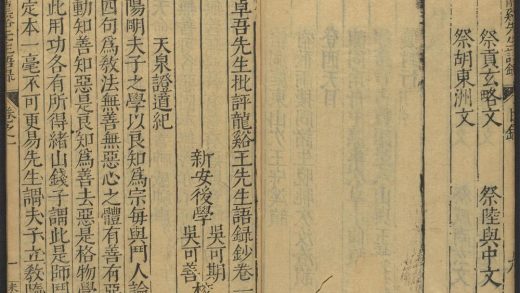 祭貢玄略文 祭陸與中文
祭胡東洲文
卓吾先生批評龍谿王先生語錄鈔卷一
新安後學 吳可期
吳可善
天泉證道紀
陽明夫子之學以良知為宗每與門人論
四句為教法無善無惡心之體有善有惡
動知善知惡是良知為善去惡是格物學
此用功各有所得緒山錢子謂此是師門
定本一毫不可更易先生謂夫子立教隨
谿先生語錄 卷之一